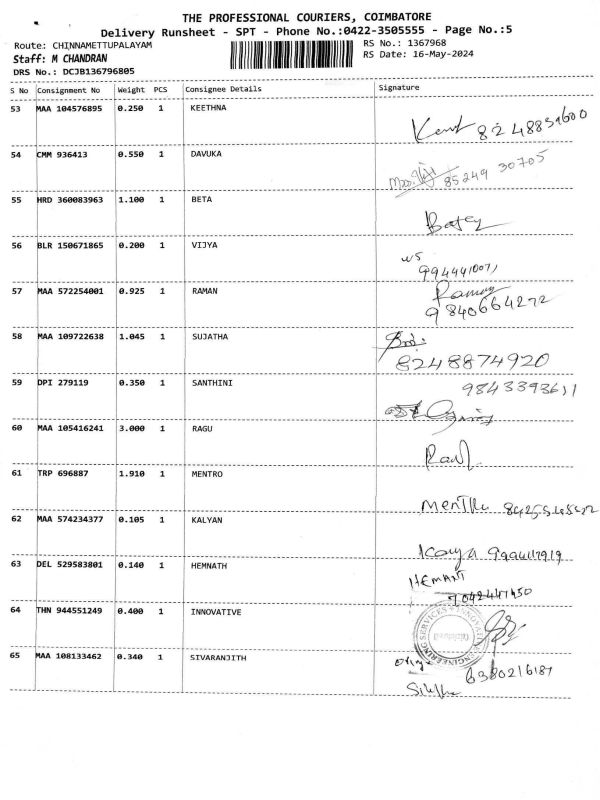 THE PROFESSIONAL COURIERS, COIMBATORE
Delivery Runsheet - SPT - Phone No.:0422-3505555 - Page No.:5
Route: CHINNAMETTUPALAYAM RS No.: 1367968
Staff: M CHANDRAN RS Date: 16-May-2024
DRS No.: DCJB136796805
S No Consignment No Weight PCS Consignee Details Signature
53 MAA 104576895 0.250 1 KEETHNA
54 CMM 936413 0.550 1 DAVUKA
85249 30705
55 HRD 360083963 1.100 1 BETA
56 BLR 150671865 0.200 1 VIJYA
57 MAA 572254001 0.925 1 RAMAN
9840664272
58 MAA 109722638 1.045 1 SUJATHA
8248874920
59 DPI 279119 0.350 1 SANTHINI
9843393611
60 MAA 105416241 3.000 1 RAGU
61 TRP 696887 1.910 1 MENTRO
62 MAA 574234377 0.105 1 KALYAN
63 DEL 529583801 0.140 1 HEMNATH
HEMANT
64 THN 944551249 0.400 1 INNOVATIVE
65 MAA 108133462 0.340 1 SIVARANJITH
6380216187